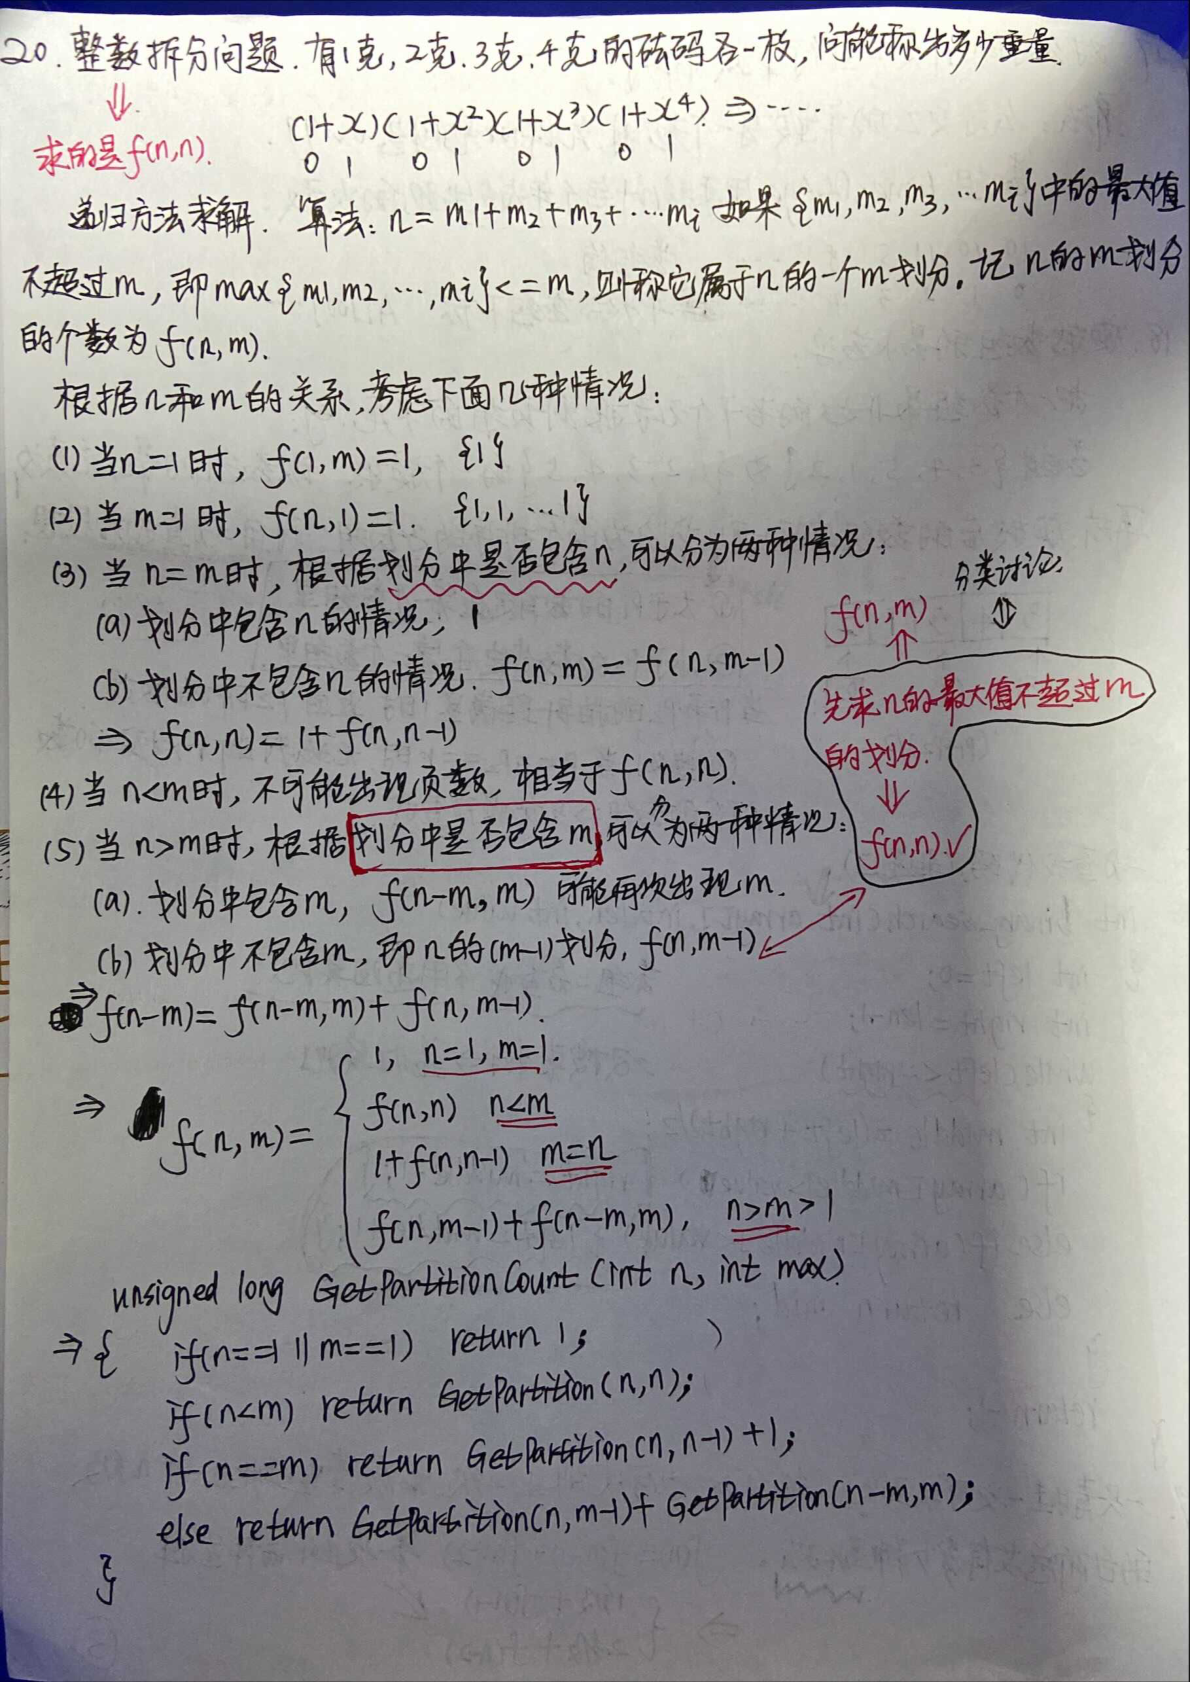 20. 整数拆分问题. 有1克, 2克, 3克, 4克的砝码各一枚, 问能称出多少重量.
⇓
求的是f(n,n).
(1+x)(1+x²)(1+x³)(1+x⁴) ⇒ ····
0 1 0 1 0 1 0 1
递归方法求解. 算法: n = m1+m2+m3+···mi 如果{m1,m2,m3,···mi}中的最大值
不超过m, 即max{m1,m2,···,mi}<=m, 则称它属于n的一个m划分. 记n的m划分
的个数为f(n,m).
根据n和m的关系,考虑下面几种情况:
(1) 当n=1时, f(1,m)=1, {1}
(2) 当m=1时, f(n,1)=1. {1,1,···1}
(3) 当n=m时, 根据划分中是否包含n, 可以分为两种情况:
(a) 划分中包含n的情况, 1
(b) 划分中不包含n的情况. f(n,m) = f(n,m-1)
⇒ f(n,n) = 1+f(n,n-1)
(4) 当n<m时, 不可能出现负数, 相当于f(n,n).
(5) 当n>m时, 根据划分中是否包含m, 可以分为两种情况:
(a). 划分中包含m, f(n-m,m) 可能再次出现m.
(b) 划分中不包含m, 即n的(m-1)划分, f(n,m-1)
分类讨论.
⇕
f(n,m)
⇑
先求n的最大值不超过m
的划分.
⇓
f(n,n).✓
⇒ f(n-m) = f(n-m,m) + f(n,m-1).
⇒ f(n,m) = {
1, n=1, m=1.
f(n,n) n<m
1+f(n,n-1) m=n
f(n,m-1)+f(n-m,m), n>m>1
unsigned long GetPartitionCount (int n, int max)
⇒ { if(n==1 || m==1) return 1; )
if(n<m) return GetPartition(n,n);
if(n==m) return GetPartition(n,n-1)+1;
else return GetPartition(n,m-1)+ GetPartition(n-m,m);
}